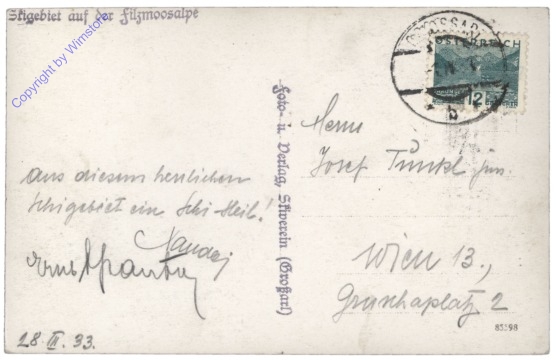 Skigebiet auf der Filzmoosalpe
Copyright by Wimstore
GROSSARL
b
ÖSTERREICH
12
Foto- u. Verlag, Skiverein (Großarl)
Herrn
Josef Tunkl jun.
Wien 13.,
Gruschaplatz 2
85398
Aus diesem herrlichen
Schigebiet ein Schi-Heil!
28 II. 33.